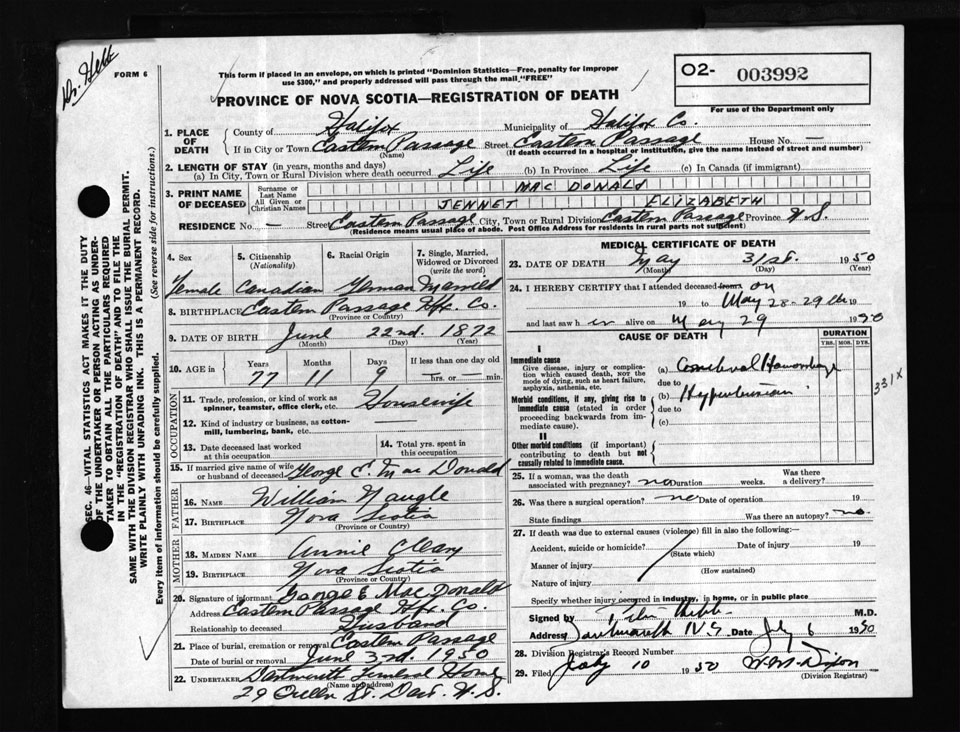 Dr. Hebb
FORM 6
This form if placed in an envelope, on which is printed "Dominion Statistics—Free, penalty for improper
use $300," and properly addressed will pass through the mail "FREE"
PROVINCE OF NOVA SCOTIA—REGISTRATION OF DEATH
O2- 003992
For use of the Department only
SEC. 46—VITAL STATISTICS ACT MAKES IT THE DUTY
OF THE UNDERTAKER OR PERSON ACTING AS UNDER-
TAKER TO OBTAIN ALL THE PARTICULARS REQUIRED
IN THE "REGISTRATION OF DEATH" AND TO FILE THE
SAME WITH THE DIVISION REGISTRAR WHO SHALL ISSUE THE BURIAL PERMIT.
WRITE PLAINLY WITH UNFADING INK. THIS IS A PERMANENT RECORD.
Every item of information should be carefully supplied. (See reverse side for instructions.)
1. PLACE OF DEATH County of Halifax Municipality of Halifax Co.
If in City or Town Eastern Passage Street Eastern Passage House No. —
(Name) (If death occurred in a hospital or institution, give the name instead of street and number)
2. LENGTH OF STAY (in years, months and days)
(a) In City, Town or Rural Division where death occurred Life (b) In Province Life (c) In Canada (if immigrant)
3. PRINT NAME OF DECEASED Surname or Last Name MAC DONALD
All Given or Christian Names JENNET ELIZABETH
RESIDENCE No. — Street Eastern Passage City, Town or Rural Division Eastern Passage Province N.S.
(Residence means usual place of abode. Post Office Address for residents in rural parts not sufficient)
4. Sex 5. Citizenship (Nationality) 6. Racial Origin 7. Single, Married, Widowed or Divorced (write the word)
Female Canadian German Married
8. BIRTHPLACE Eastern Passage Hfx. Co.
(Province or Country)
9. DATE OF BIRTH June 22nd. 1872
(Month) (Day) (Year)
10. AGE in Years Months Days If less than one day old
77 11 9 —hrs. or —min.
OCCUPATION
11. Trade, profession, or kind of work as spinner, teamster, office clerk, etc. Housewife
12. Kind of industry or business, as cotton-mill, lumbering, bank, etc.
13. Date deceased last worked at this occupation
14. Total yrs. spent in this occupation
15. If married give name of wife or husband of deceased George E. Mac Donald
FATHER
16. NAME William Naugle
17. BIRTHPLACE Nova Scotia
(Province or Country)
MOTHER
18. MAIDEN NAME Annie Cleary
19. BIRTHPLACE Nova Scotia
(Province or Country)
20. Signature of informant George E Mac Donald
Address Eastern Passage Hfx. Co.
Relationship to deceased Husband
21. Place of burial, cremation or removal Eastern Passage
Date of burial or removal June 3rd. 1950
22. UNDERTAKER Dartmouth Funeral Home
(Name and address)
29 Queen St. Dart. N.S.
MEDICAL CERTIFICATE OF DEATH
23. DATE OF DEATH May 31st. 1950
(Month) (Day) (Year)
24. I HEREBY CERTIFY that I attended deceased from on
19 to May 28-29th 19
and last saw her alive on May 29 1950
CAUSE OF DEATH DURATION
YRS. MOS. DYS.
I
Immediate cause
Give disease, injury or complication which caused death, NOT the mode of dying, such as heart failure, asphyxia, asthenia, etc.
(a) Cerebral Haemorrhage
due to
Morbid conditions, if any, giving rise to immediate cause (stated in order proceeding backwards from immediate cause).
(b) Hypertension
due to
(c)
331X
II
Other morbid conditions (if important) contributing to death but not causally related to immediate cause.
25. If a woman, was the death associated with pregnancy? no Duration weeks. Was there a delivery?
26. Was there a surgical operation? no Date of operation 19
State findings Was there an autopsy? no.
27. If death was due to external causes (violence) fill in also the following:—
Accident, suicide or homicide? Date of injury 19
(State which)
Manner of injury
(How sustained)
Nature of injury
Specify whether injury occurred in industry, in home, or in public place
Signed by Hebb M.D.
Address Dartmouth N.S Date July 6 1950
28. Division Registrar's Record Number
29. Filed July 10 1950 W. M. Dixon
(Division Registrar)